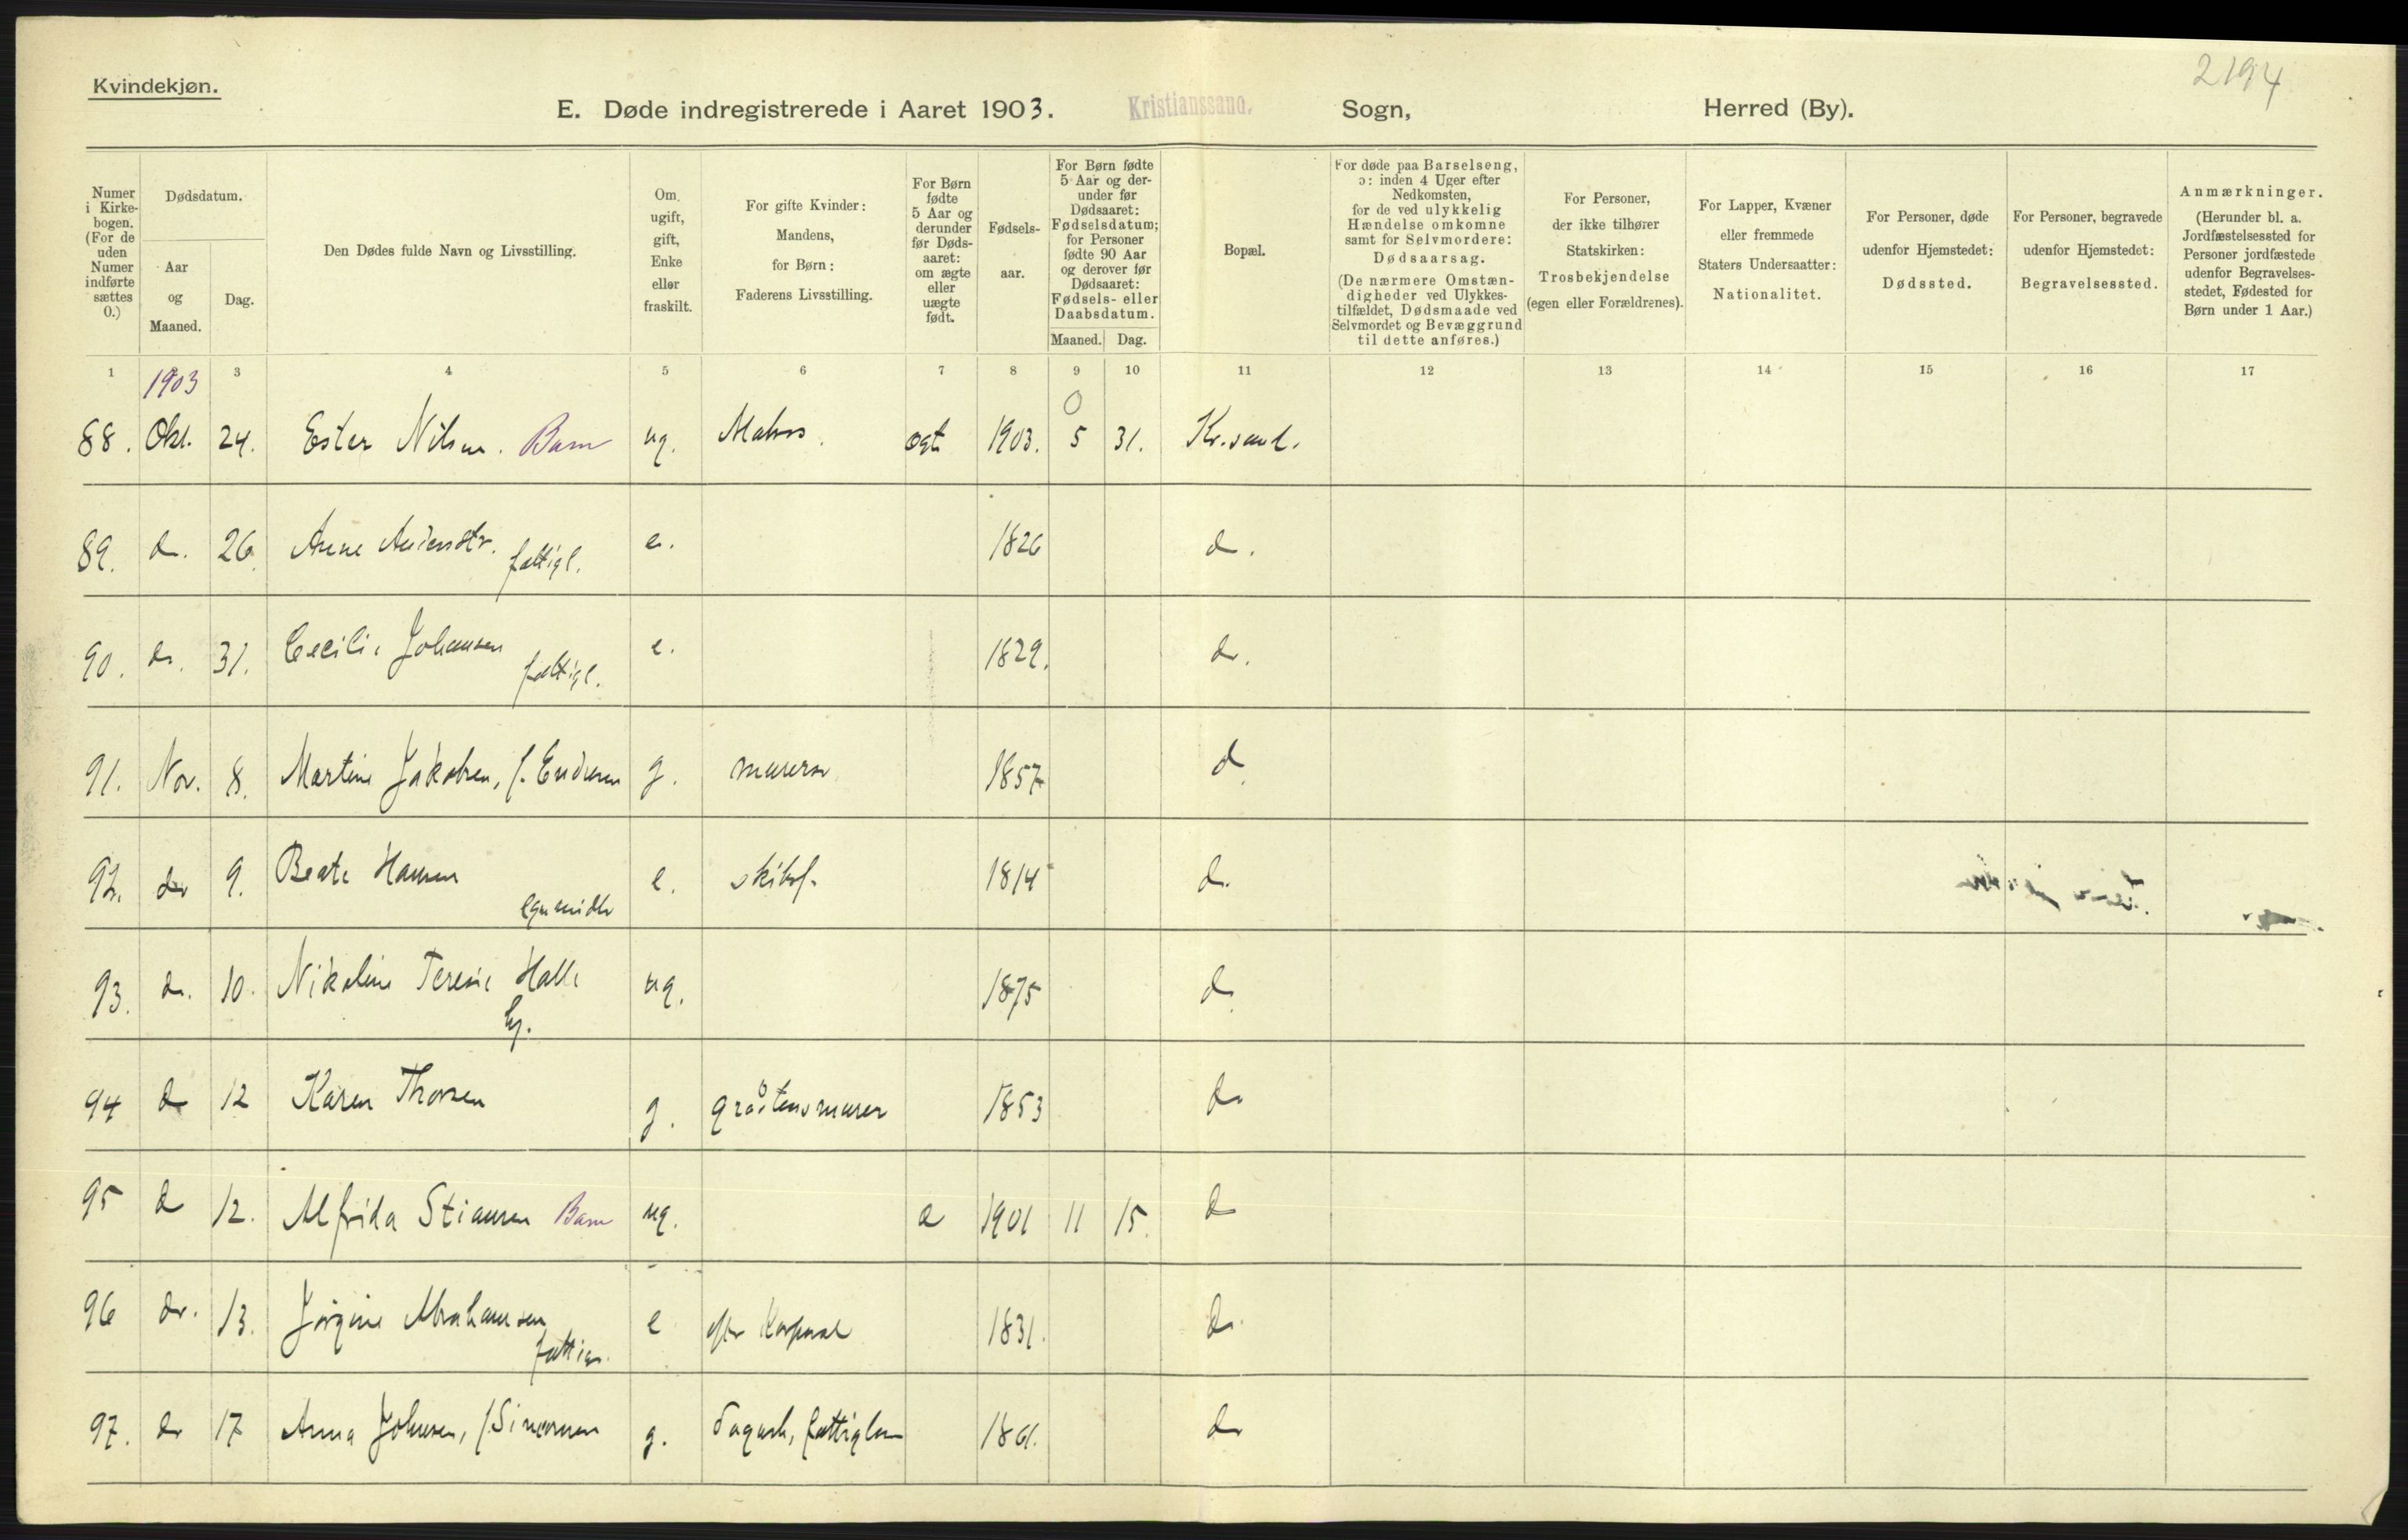 Kvindekjøn.
2194
E. Døde indregistrerede i Aaret 1903. Kristianssand. Sogn, Herred (By).
Numer i Kirkebogen. (For de uden Numer indførte sættes 0.)
Dødsdatum.
Aar og Maaned.
Dag.
Den Dødes fulde Navn og Livsstilling.
Om ugift, gift, Enke eller fraskilt.
For gifte Kvinder: Mandens, for Børn: Faderens Livsstilling.
For Børn fødte 5 Aar og derunder før Dødsaaret: om ægte eller uægte født.
Fødselsaar.
For Børn fødte 5 Aar og derunder før Dødsaaret: Fødselsdatum; for Personer fødte 90 Aar og derover før Dødsaaret: Fødsels- eller Daabsdatum.
Maaned. Dag.
Bopæl.
For døde paa Barselseng, ɔ: inden 4 Uger efter Nedkomsten, for de ved ulykkelig Hændelse omkomne samt for Selvmordere: Dødsaarsag.
(De nærmere Omstændigheder ved Ulykkestilfældet, Dødsmaade ved Selvmordet og Bevæggrund til dette anføres.)
For Personer, der ikke tilhører Statskirken: Trosbekjendelse (egen eller Forældrenes).
For Lapper, Kvæner eller fremmede Staters Undersaatter: Nationalitet.
For Personer, døde udenfor Hjemstedet: Dødssted.
For Personer, begravede udenfor Hjemstedet: Begravelsessted.
Anmærkninger. (Herunder bl. a. Jordfæstelsessted for Personer jordfæstede udenfor Begravelsesstedet, Fødested for Børn under 1 Aar.)
1 1903 3 4 5 6 7 8 9 10 11 12 13 14 15 16 17
0
88. Okt. 24. Ester Nilsen. Barn ug. Matros. ægt 1903. 5 31. Kr.sand.
89. do. 26. Anne Andersdtr. e. 1826 do.
fattigl.
90. do. 31. Cecilie Johansen e. 1829. do.
fattigl.
91. Nov. 8. Martine Jakobsen, f. Endresen g. murersv. 1857 do
92. do 9. Beate Hansen e. skibsf. 1814 do.
egne midler
93. do. 10. Nikoline Teresie Halle ug. 1875 do
94 do 12 Karen Thorsen g. gråstensmurer 1853 do
95 do 12. Alfrida Stiansen Barn ug. æ 1901 11 15. do
96 do. 13. Jørgine Abrahamsen e efter Korporal 1831. do.
fattigv.
97. do 17 Anna Johnsen, f. Simonsen g. Dagarb, fattiglem 1861. do